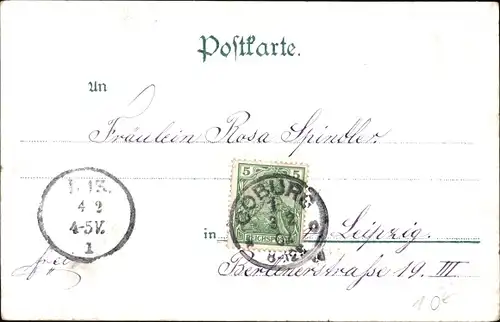 Postkarte.
An
Fräulein Rosa Spindler.
4 2
4-5V.
1
5 5
COBURG
REICHSPOST
8-12
in Leipzig.
Berlinerstraße 19. III
10€